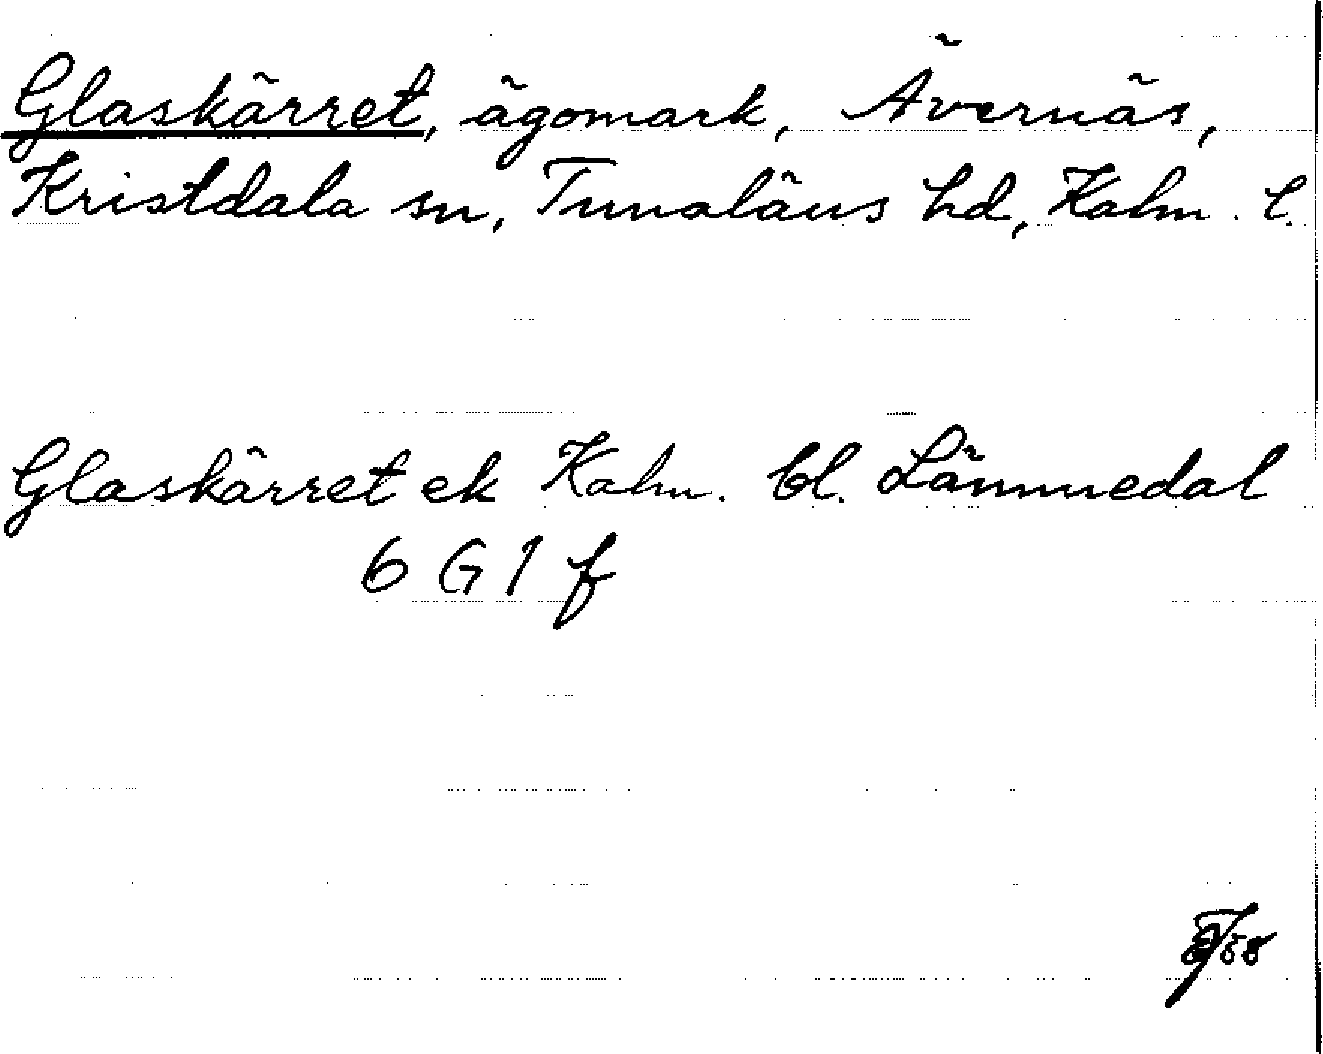 Glaskärret, ägomark, Ävernäs,
Kristdala sn, Tunaläns hd, Kalm. l.
Glaskärret ek Kalm. bl. Lämmedal
6 G 1 f